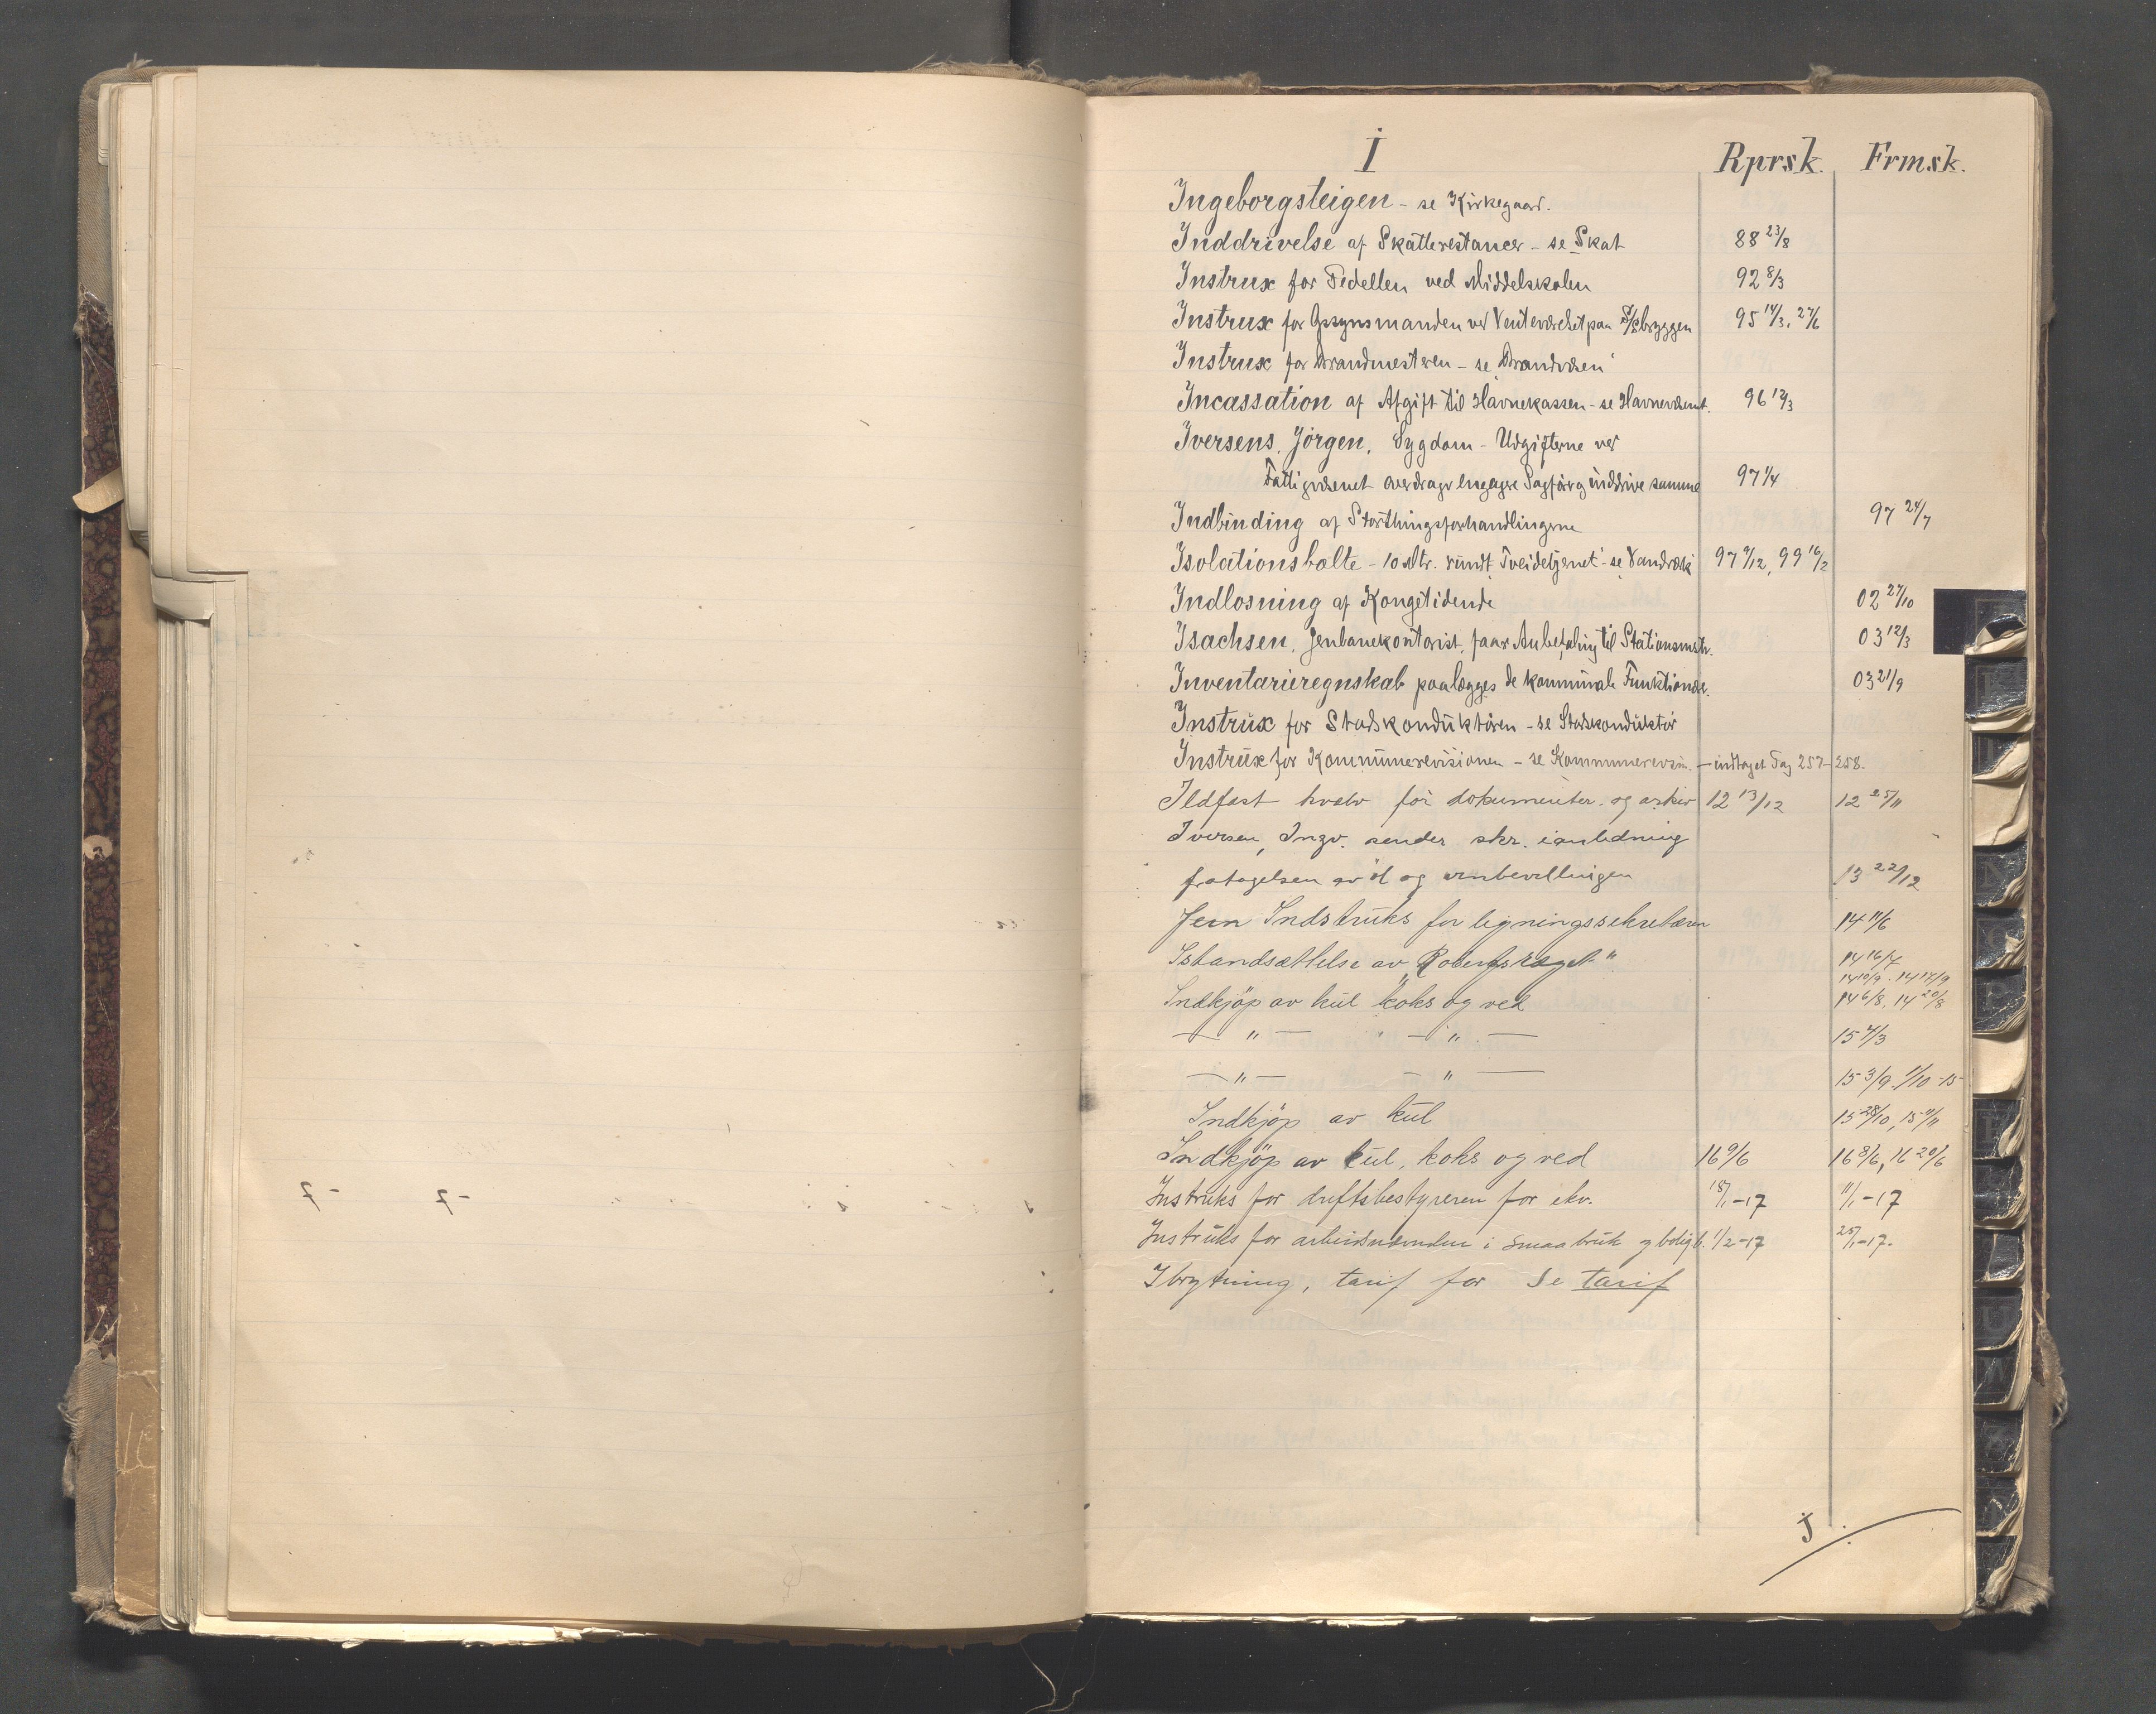 I Rprsk. Frmsk.
Ingeborgsteigen - se Kirkegaard.
Inddrivelse af Skatterestancer - se Skat 88 23/8
Instrux for Pedellen ved Middelskolen 92 8/3
Instrux for Opsynsmanden ved Venteværelset paa D/Sbryggen 95 14/3, 27/6
Instrux for Brandmesteren - se Brandvæsen
Incassation af Afgift til Havnekassen - se Havnevæsenet. 96 12/3
Iversens, Jörgen, Sygdom - Udgifterne ved
Fattigvæsenet overdrage engagere Sagförer inddrive samme 97 1/4
Indbinding af Storthingsforhandlingerne 97 24/7
Isolationsbælte - 10 Mtr. rundt Tveidetjernet - se Vandværk 97 9/12, 99 16/2
Indlosning af Kongetidende 02 27/10
Isachsen, Jenbanekontorist, faar Anbefaling til Stationsmstr. 03 12/3
Inventarieregnskab paalægges de kommunale Funktionær. 03 21/9
Instrux for Stadskonduktören - se Stadskonduktör
Instrux for Kommunerevisionen - se Kommunerevsin. - indtaget Pag 257-258.
Ildfast hvælv for dokumenter og arkiv 12 13/12 12 25/11
Iversen, Ingv. sender skr. i anledning
fratagelsen av öl og vinbevillingen 13 22/12
Jern Indstruks for ligningssekretæren 14 11/6
Istandsættelse av "Robergskaget" 14 16/7
14 10/9. 14 17/9
Indkjöp av kul koks og ved 14 6/8. 14 20/8
— " — — " — 15 4/3
— " — — " — 15 3/9. 1/10-15
Indkjöp av kul 15 28/10, 15 11/11
Indkjöp av kul, koks og ved 16 9/6 16 8/6, 16 20/6
Instruks for driftsbestyreren for ekv. 18/1-17 11/1-17
Instruks for arbeidsnemnden i smaabruk og bolig b. 1/2-17 25/1-17.
Ibrytning, tarif for Se tarif
J